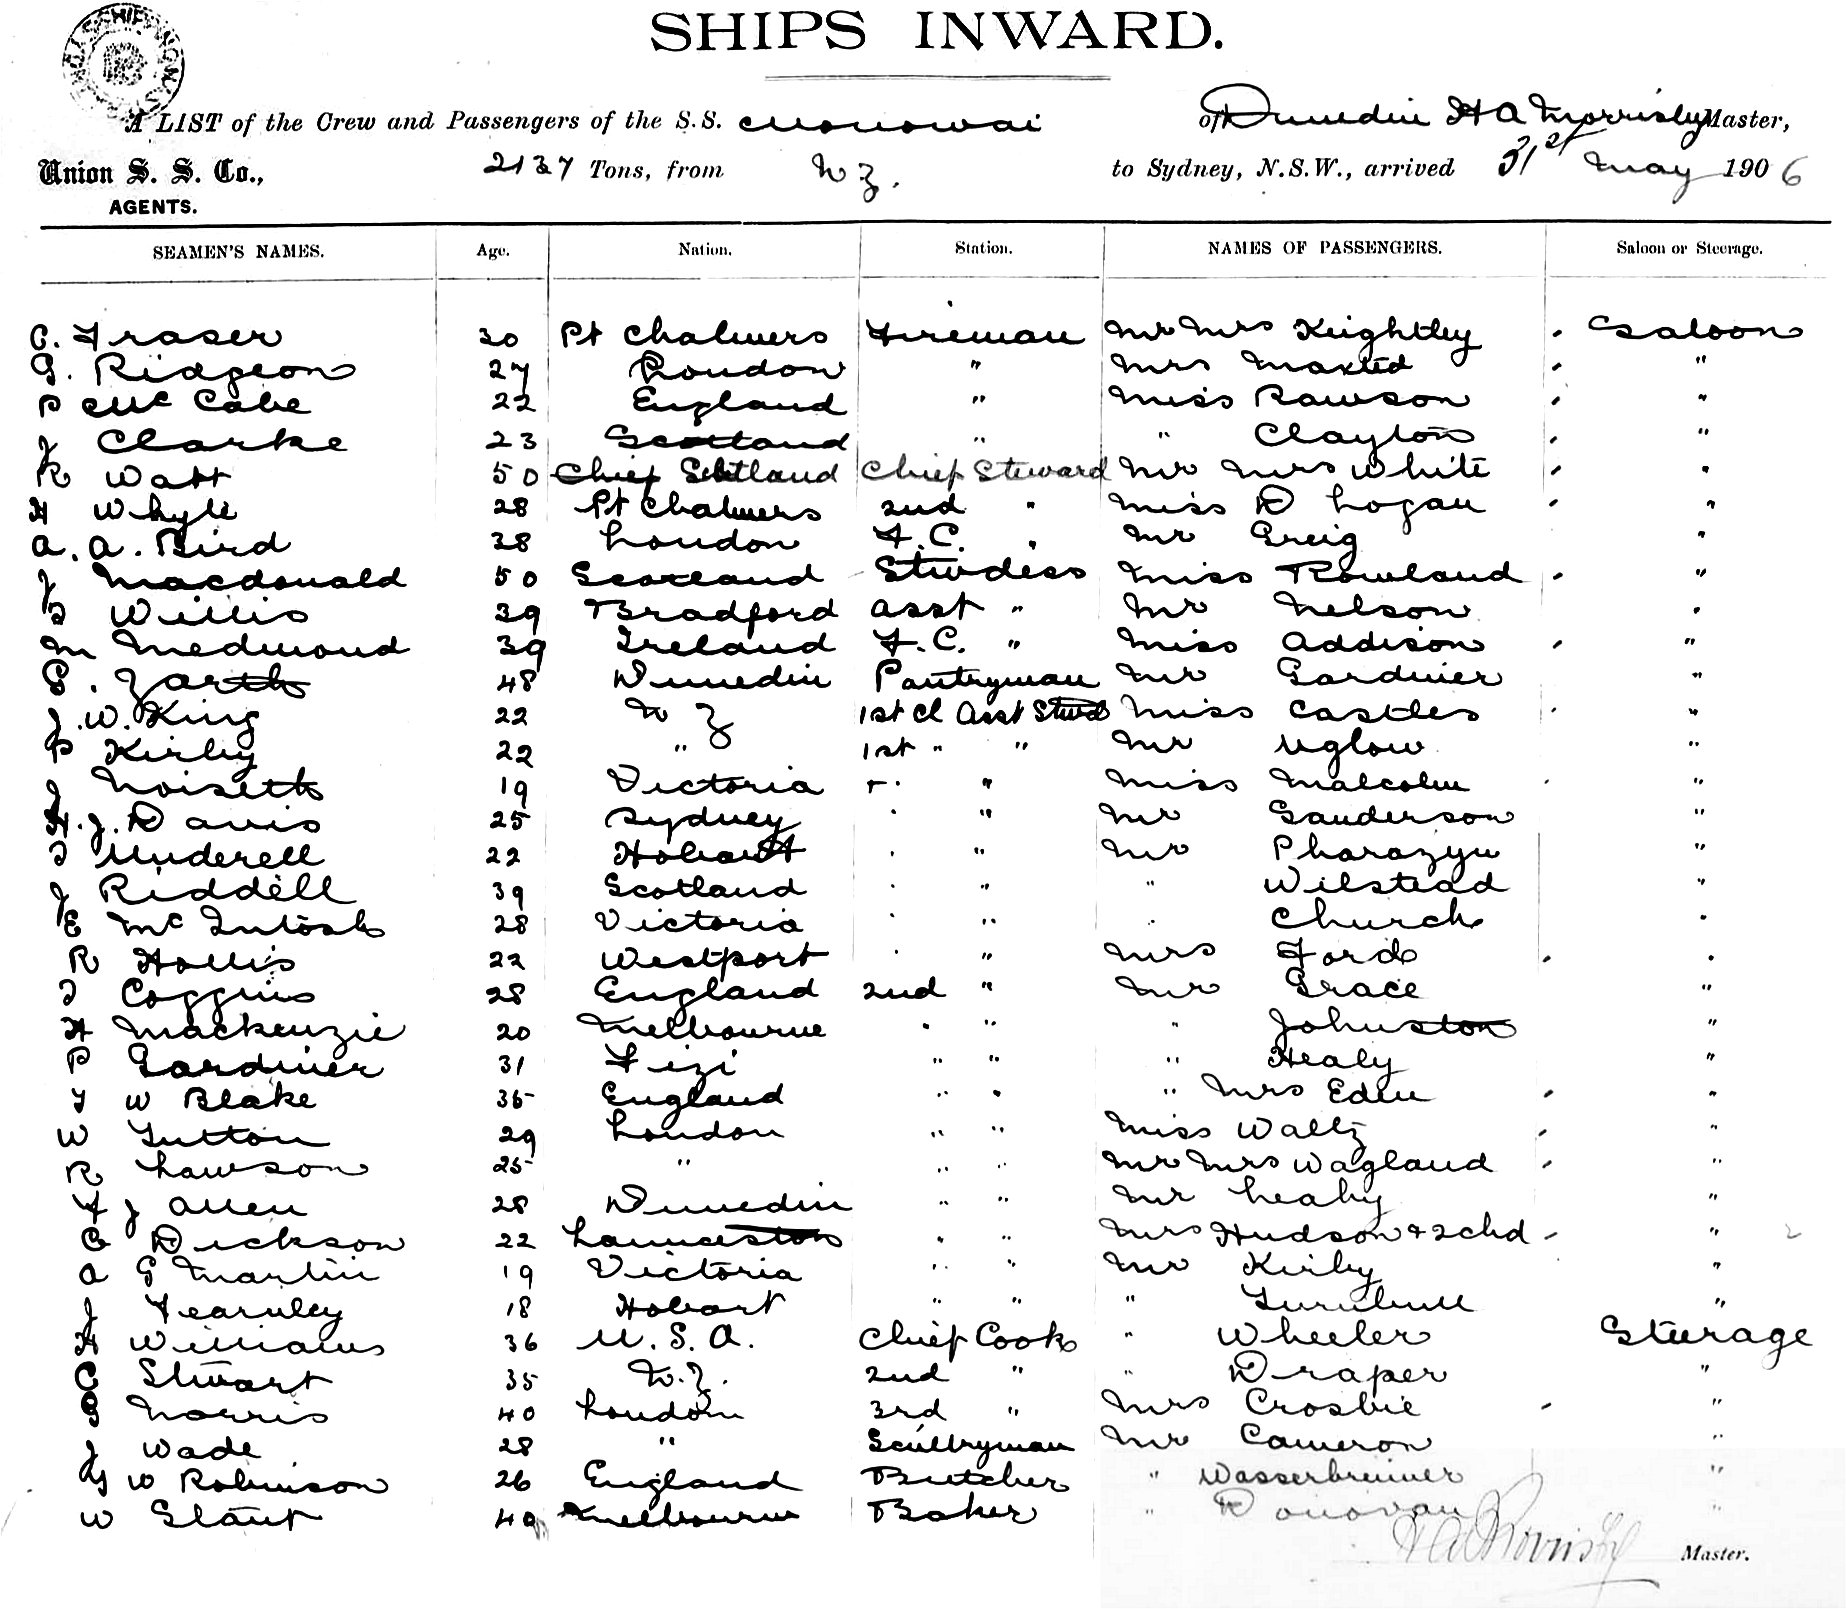 SHIPS INWARD.
A LIST of the Crew and Passengers of the S.S. Monowai of Dunedin H A Morrisby Master,
Union S. S. Co., 2137 Tons, from N Z. to Sydney, N.S.W., arrived 31st May 1906
AGENTS.
SEAMEN'S NAMES. Age. Nation. Station. NAMES OF PASSENGERS. Saloon or Steerage.
C. Fraser 30 Pt Chalmers Fireman Mr Mrs Keightley . Saloon
G. Ridgeon 27 London " Mrs Maxted . "
P McCabe 22 England " Miss Rawson . "
J Clarke 23 Scotland " " Clayton . "
R Watt 50 Chief Scotland Chief Steward Mr Mrs White . "
H Whyte 28 Pt Chalmers 2nd " Miss D Logan . "
A. A. Bird 38 London F.C. " Mr Greig "
J Macdonald 50 Scotland Stwdess Miss Rowland . "
I Willis 39 Bradford Asst " Mr Nelson "
M Medmond 39 Ireland F.C. " Miss Addison . "
G. Zarth 48 Dunedin Pantryman Mr Gardiner "
J. W. King 22 N Z 1st Cl Asst Stwd Miss Castles . "
P Kirby 22 " 1st " " Mr Uglow "
J Noisett 19 Victoria " Miss Malcolm . "
H. J. Davis 25 Sydney " " Mr Sanderson "
I Underell 22 Hobart " " Mr Pharazyn "
J Riddell 39 Scotland " " " Wilstead "
E McIntosh 28 Victoria " " " Church "
R Hollis 22 Westport " " Mrs Ford . "
I Coggins 28 England 2nd " Mr Grace "
H Mackenzie 20 Melbourne " " " Johnston "
P Gardiner 31 Fizi " " " Healy "
F W Blake 35 England " " " Mrs Eden . "
W Tutton 29 London " " Miss Waltz . "
R Lawson 25 " " " Mr Mrs Wagland . "
F J Allen 28 Dunedin " " Mr Leahy "
C Dickson 22 Launceston " " Mrs Hudson + 2 chd . " 2
A G Martin 19 Victoria " " Mr Kirby "
J Fearnley 18 Hobart " " " Turnbull "
H Williams 36 U. S. A. Chief Cook " Wheeler Steerage
C Stewart 35 N.Z. 2nd " " Draper "
G Norris 40 London 3rd " Mrs Crosbie . "
J Wade 28 " Scullryman Mr Cameron "
G W Robinson 26 England Butcher " Wasserbrenner "
W Staut 40 Melbourne Baker " Donovan "
H A Morrisby Master.